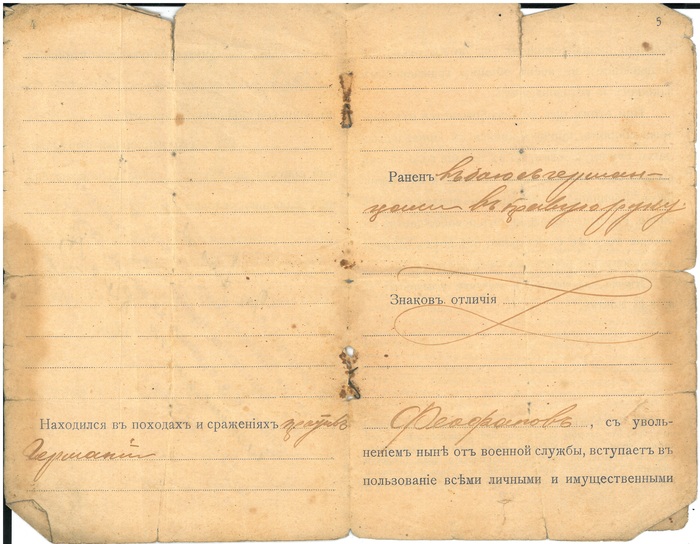 4
Находился въ походахъ и сраженіяхъ противъ
Германіи
5
Раненъ въ бою съ герман-
цами въ правую руку.
Знаковъ отличія
Феофановъ, съ уволь-
неніемъ нынѣ отъ военной службы, вступаетъ въ
пользованіе всѣми личными и имущественными